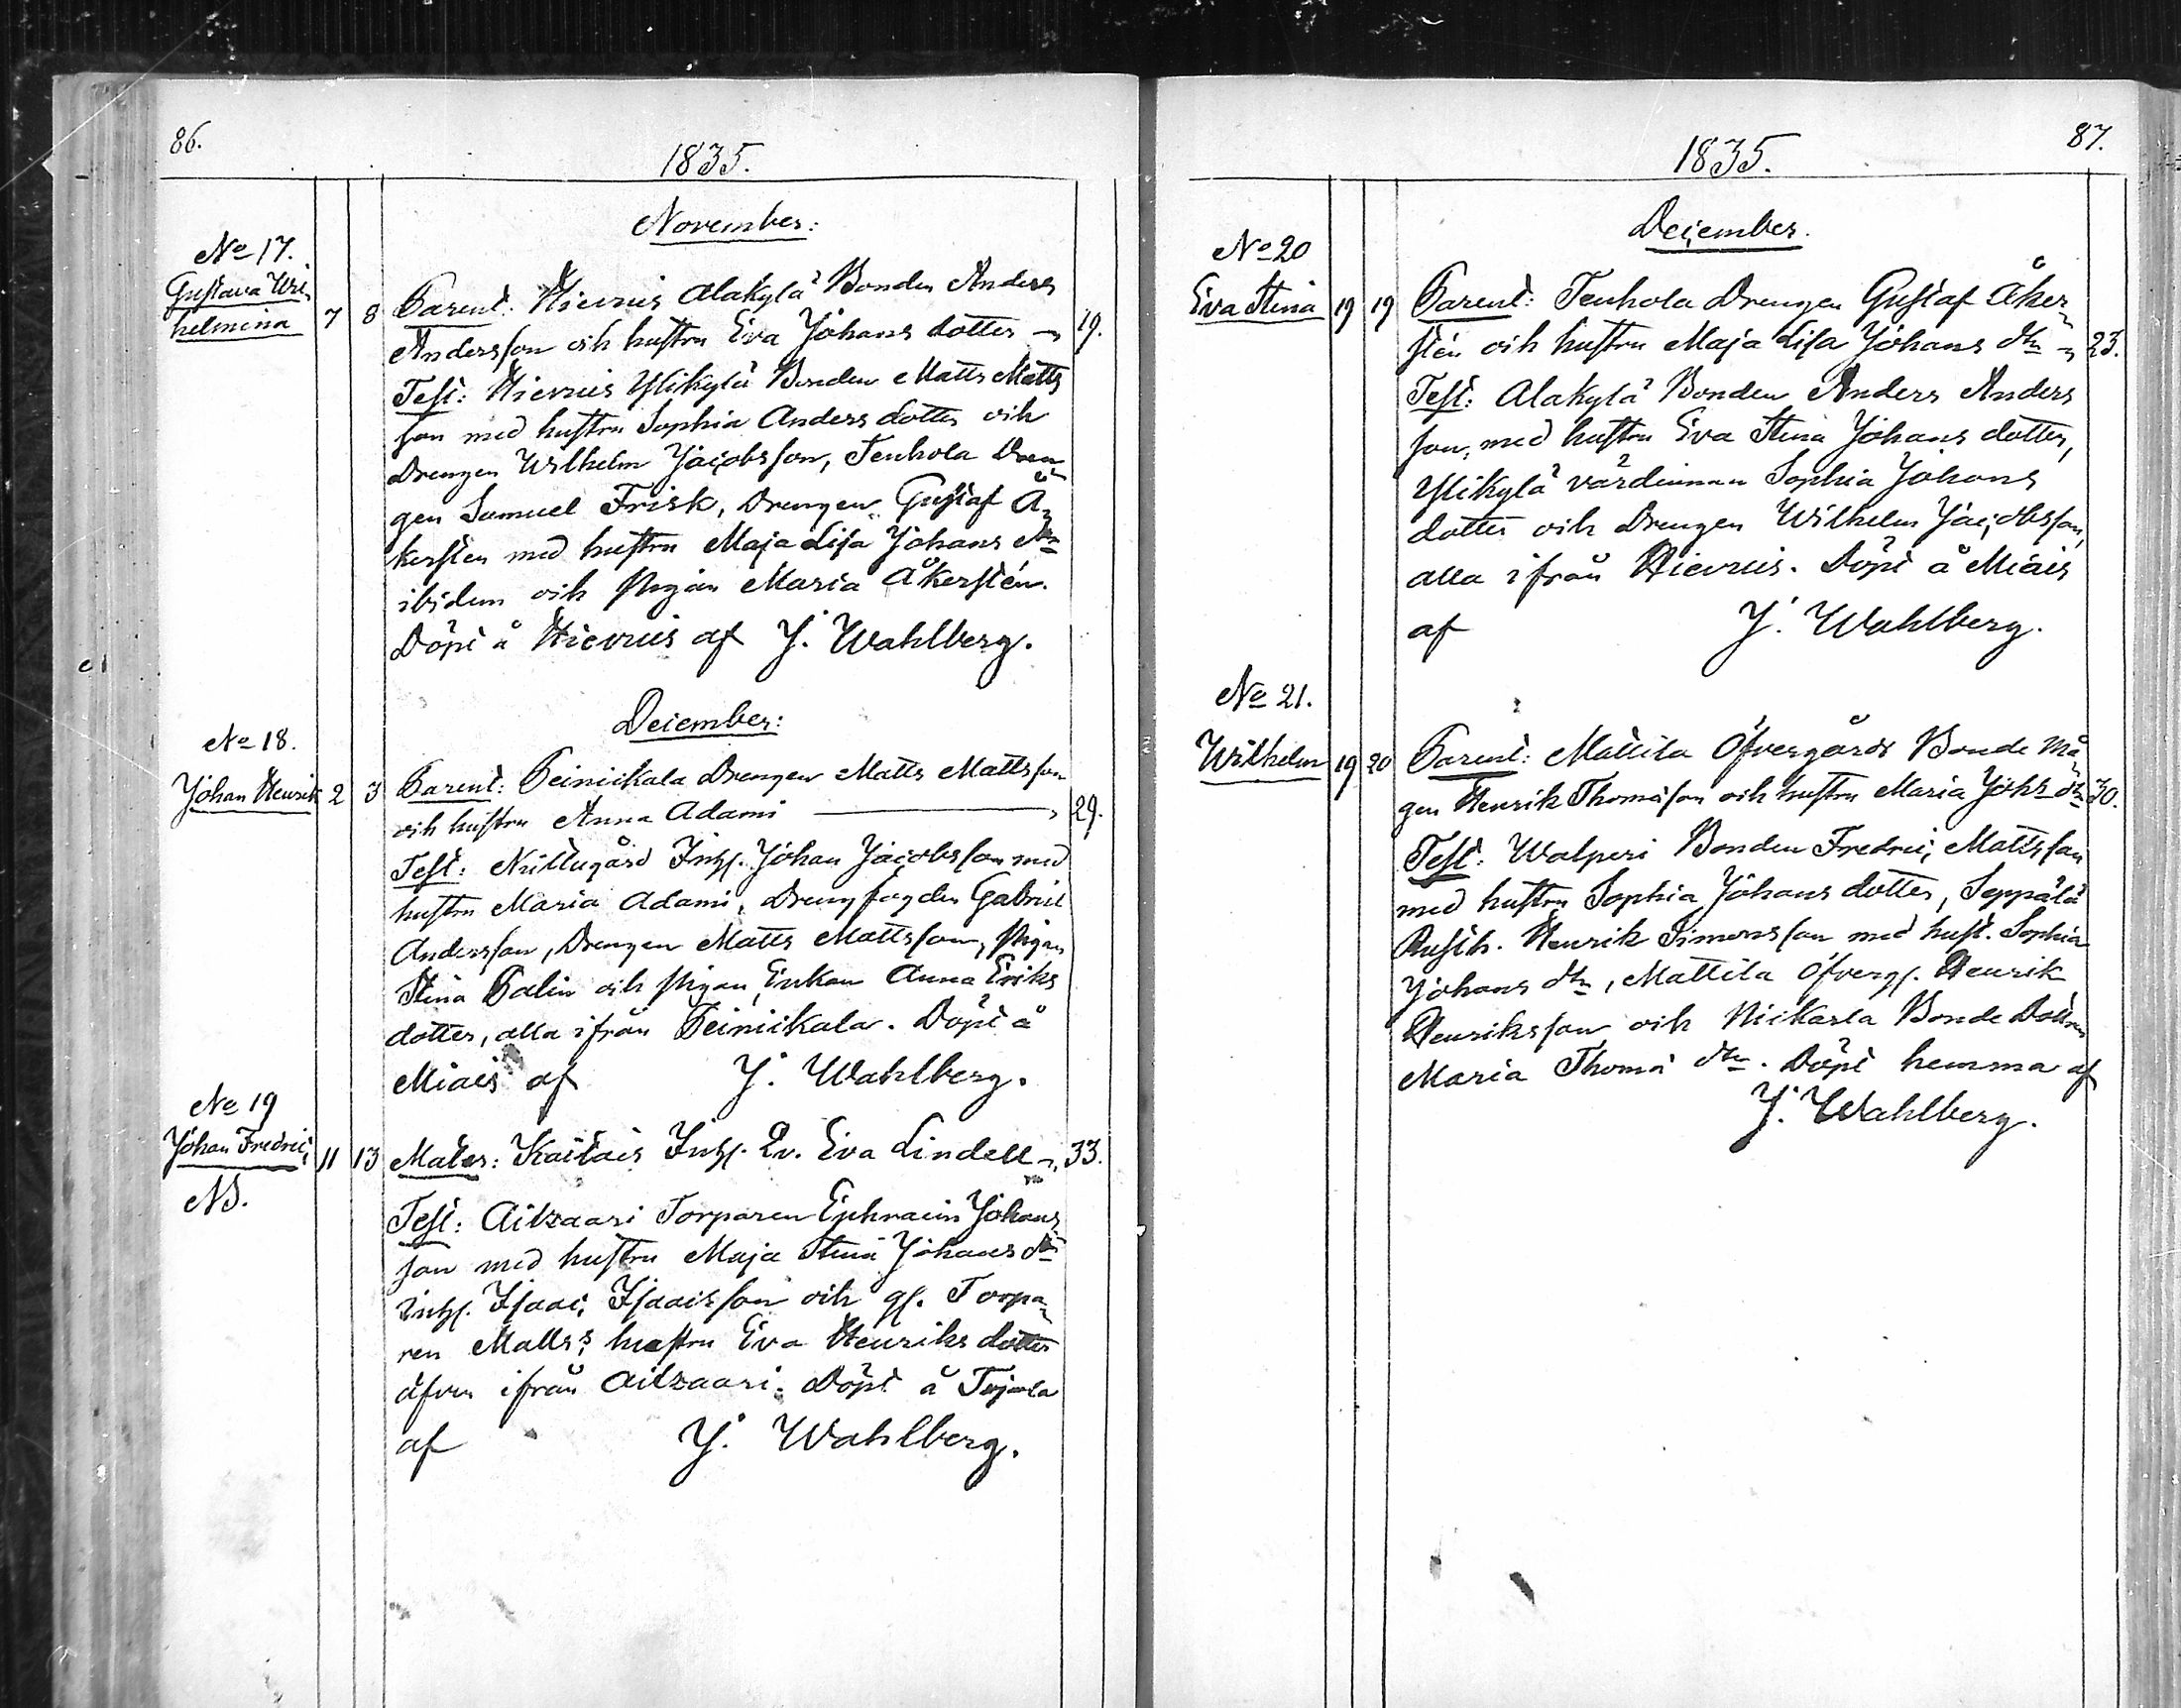 86.
1835.
November:
No 17.
Gustava Wil,
helmina
7 8 Parent: Hievuis Alakylä Bonden Anders
Andersson och hustru Eva Johans dotter 19.
Test: Hievuis Ylikylä Bonden Matts Matts
son med hustru Sophia Anders dotter och
Drengen Wilhelm Jacobsson, Tenhola Dren,
gen Samuel Frisk, Drengen Gustaf Å,
kersten med hustru Maja Lisa Johans dtr
ibidem och Pigan Maria Åkerstén.
Döpt å Hievuis af J. Wahlberg.
December:
No 18.
Johan Henrik 2 3 Parent: Peinickala Drengen Matts Mattsson
och hustru Anna Adami 29.
Test: Inhs. Johan Jacobsson med
hustru Maria Adami, Drengfogden Gabriel
Andersson, Drengen Matts Mattsson, Pigan
Stina Palin och Pigan, Enkan Anna Eriks
dotter, alla ifrån Peinickala. Döpt å
Miais af J. Wahlberg.
No 19
Johan Fredric, 11 13 Mater: Kaitais Inhs. Qv. Eva Lindell 33.
NB.
Test: Aitzaari Torparen Ephraim Johans
son med hustru Maja Stina Johans dtr
Inhs. Isaac Isaacsson och gs. Torpa,
ren Matts hustru Eva Henriks dotter
äfven ifrån Aitzaari. Döpt å
af J. Wahlberg.
87.
1835.
December.
No 20
Eva Stina 19 19 Parent: Tenhola Drengen Gustaf Åker,
stén och hustru Maja Lisa Johans dtr 23.
Test: Alakylä Bonden Anders Anders
son, med hustru Eva Stina Johans dotter,
Ylikylä värdinnan Sophia Johans
dotter och Drengen Wilhelm Jacobsson,
alla ifrån Hievuis. Döpt å Miais
af J. Wahlberg.
No 21.
Wilhelm 19 20 Parent: Mattila Öfvergårds Bonde Må,
gen Henrik Thomasson och hustru Maria Johs dtr 30.
Test: Walperi Bonden Fredric Mattsson
med hustru Sophia Johans dotter, Seppälä
Rusth. Henrik Simonsson med hust. Sophia
Johans dtr, Mattila Öfvergs. Henrik
Henriksson och Nickarla Bonde Dottren
Maria Thoma dtr. Döpt hemma af
J. Wahlberg.